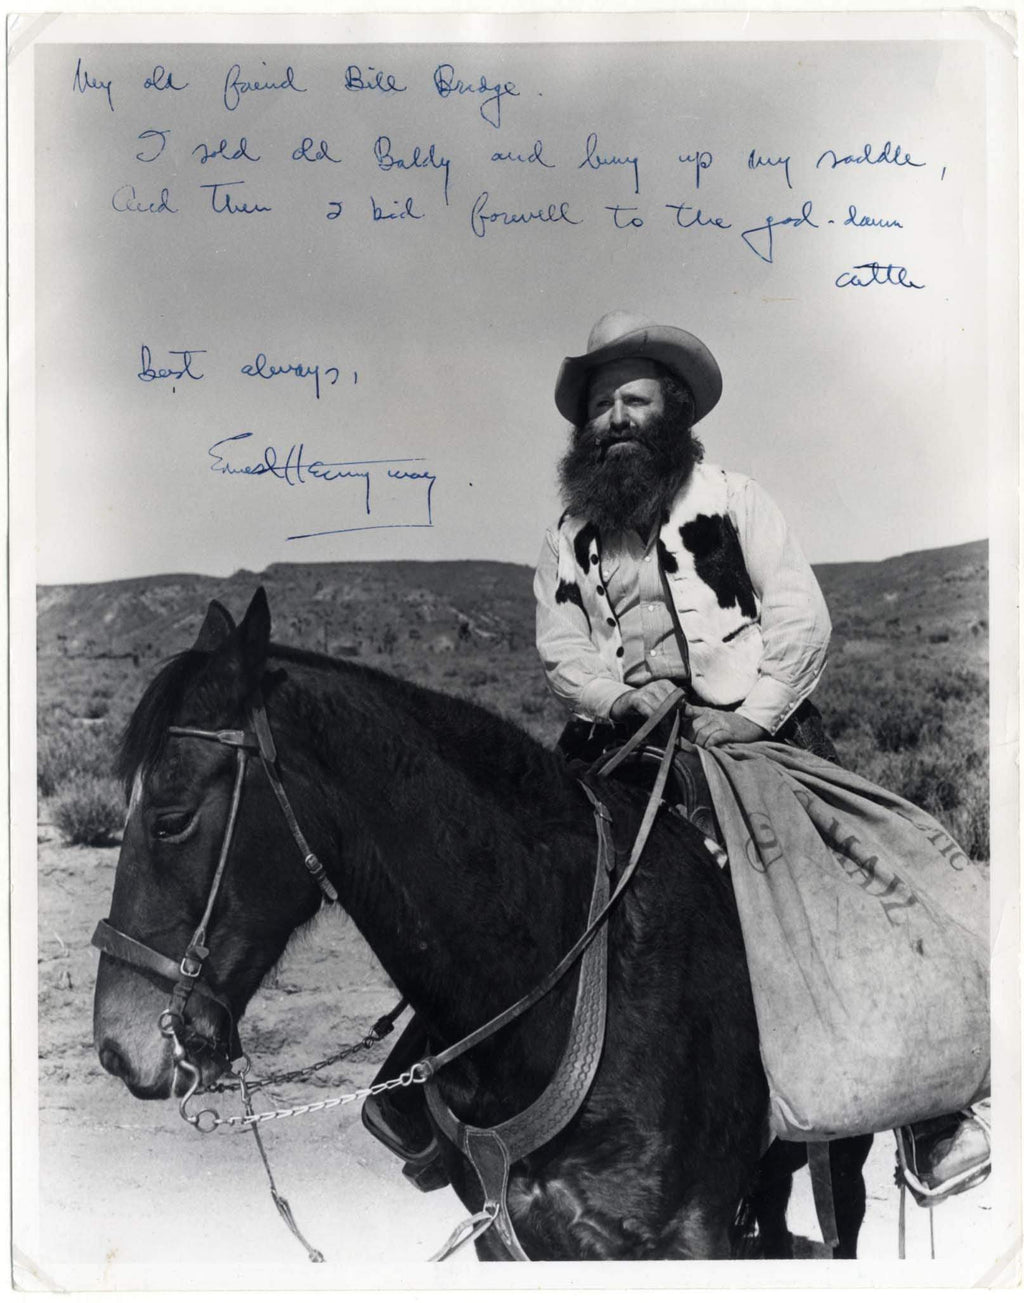 My old friend Bill Bridge.
I sold old Baldy and hung up my saddle,
And then I bid farwell to the god-damn
cattle
best always,
Ernest Hemingway.
2
MAIL
TIC